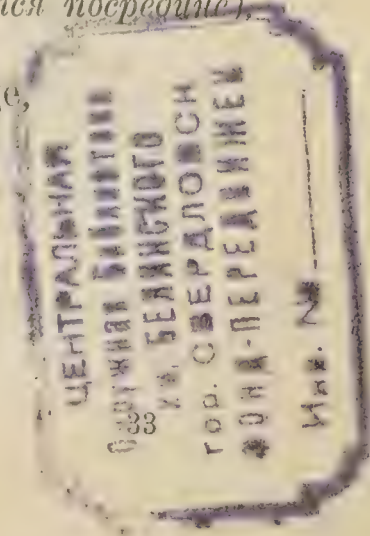 ся посредине),
е,
33
ЦЕНТРАЛЬНАЯ
ОКРУЖНАЯ БИБЛИОТЕКА
ИМ. БЕЛИНСКОГО
гор. СВЕРДЛОВСК
ФОНД-ПЕРЕДВИЖЕК
Инв. №